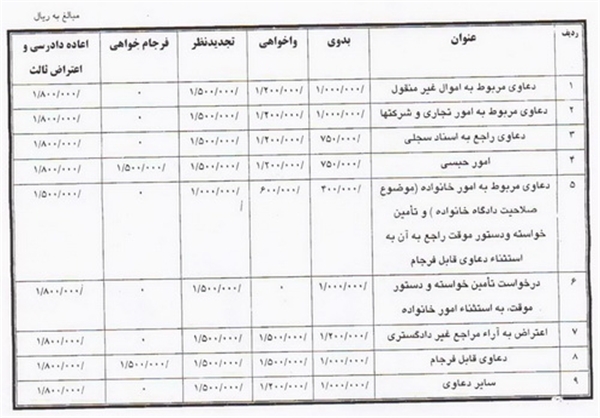 مبالغ به ریال
ردیف عنوان بدوی واخواهی تجدیدنظر فرجام خواهی اعاده دادرسی و
اعتراض ثالث
۱ دعاوی مربوط به اموال غیر منقول ۱/۰۰۰/۰۰۰/ ۱/۲۰۰/۰۰۰/ ۱/۵۰۰/۰۰۰/ ۰ ۱/۸۰۰/۰۰۰/
۲ دعاوی مربوط به امور تجاری و شرکتها ۱/۰۰۰/۰۰۰/ ۱/۲۰۰/۰۰۰/ ۱/۵۰۰/۰۰۰/ ۰ ۱/۸۰۰/۰۰۰/
۳ دعاوی راجع به اسناد سجلی ۷۵۰/۰۰۰/ ۱/۲۰۰/۰۰۰/ ۱/۵۰۰/۰۰۰/ ۰ ۱/۸۰۰/۰۰۰/
۴ امور حبسی ۷۵۰/۰۰۰/ ۱/۲۰۰/۰۰۰/ ۱/۵۰۰/۰۰۰/ ۱/۵۰۰/۰۰۰/ ۱/۸۰۰/۰۰۰/
۵ دعاوی مربوط به امور خانواده (موضوع ۴۰۰/۰۰۰/ ۶۰۰/۰۰۰/ ۱/۰۰۰/۰۰۰/ ۰ ۱/۵۰۰/۰۰۰/
صلاحیت دادگاه خانواده ) و تأمین
خواسته ودستور موقت راجع به آن به
استثناء دعاوی قابل فرجام
۶ درخواست تأمین خواسته و دستور ۱/۰۰۰/۰۰۰/ ۰ ۱/۵۰۰/۰۰۰/ ۰ ۱/۸۰۰/۰۰۰/
موقت، به استثناء امور خانواده
۷ اعتراض به آراء مراجع غیر دادگستری ۱/۲۰۰/۰۰۰/ ۱/۵۰۰/۰۰۰/ ۱/۵۰۰/۰۰۰/ ۰ ۱/۸۰۰/۰۰۰/
۸ دعاوی قابل فرجام ۱/۰۰۰/۰۰۰/ ۱/۵۰۰/۰۰۰/ ۱/۵۰۰/۰۰۰/ ۱/۵۰۰/۰۰۰/ ۱/۸۰۰/۰۰۰/
۹ سایر دعاوی ۱/۰۰۰/۰۰۰/ ۱/۲۰۰/۰۰۰/ ۱/۵۰۰/۰۰۰/ ۰ ۱/۸۰۰/۰۰۰/